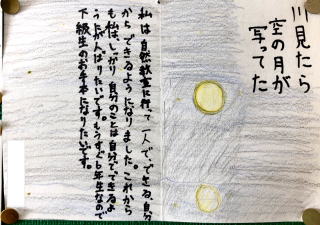 川見たら
空の月が
写ってた
私は自然教室に行って一人で、できる自分
からできるようになりました。これから
も私は、しっかり自分のことは自分でできるよ
うにがんばりたいです。もうすぐ6年生なので
下級生のお手本になりたいです。